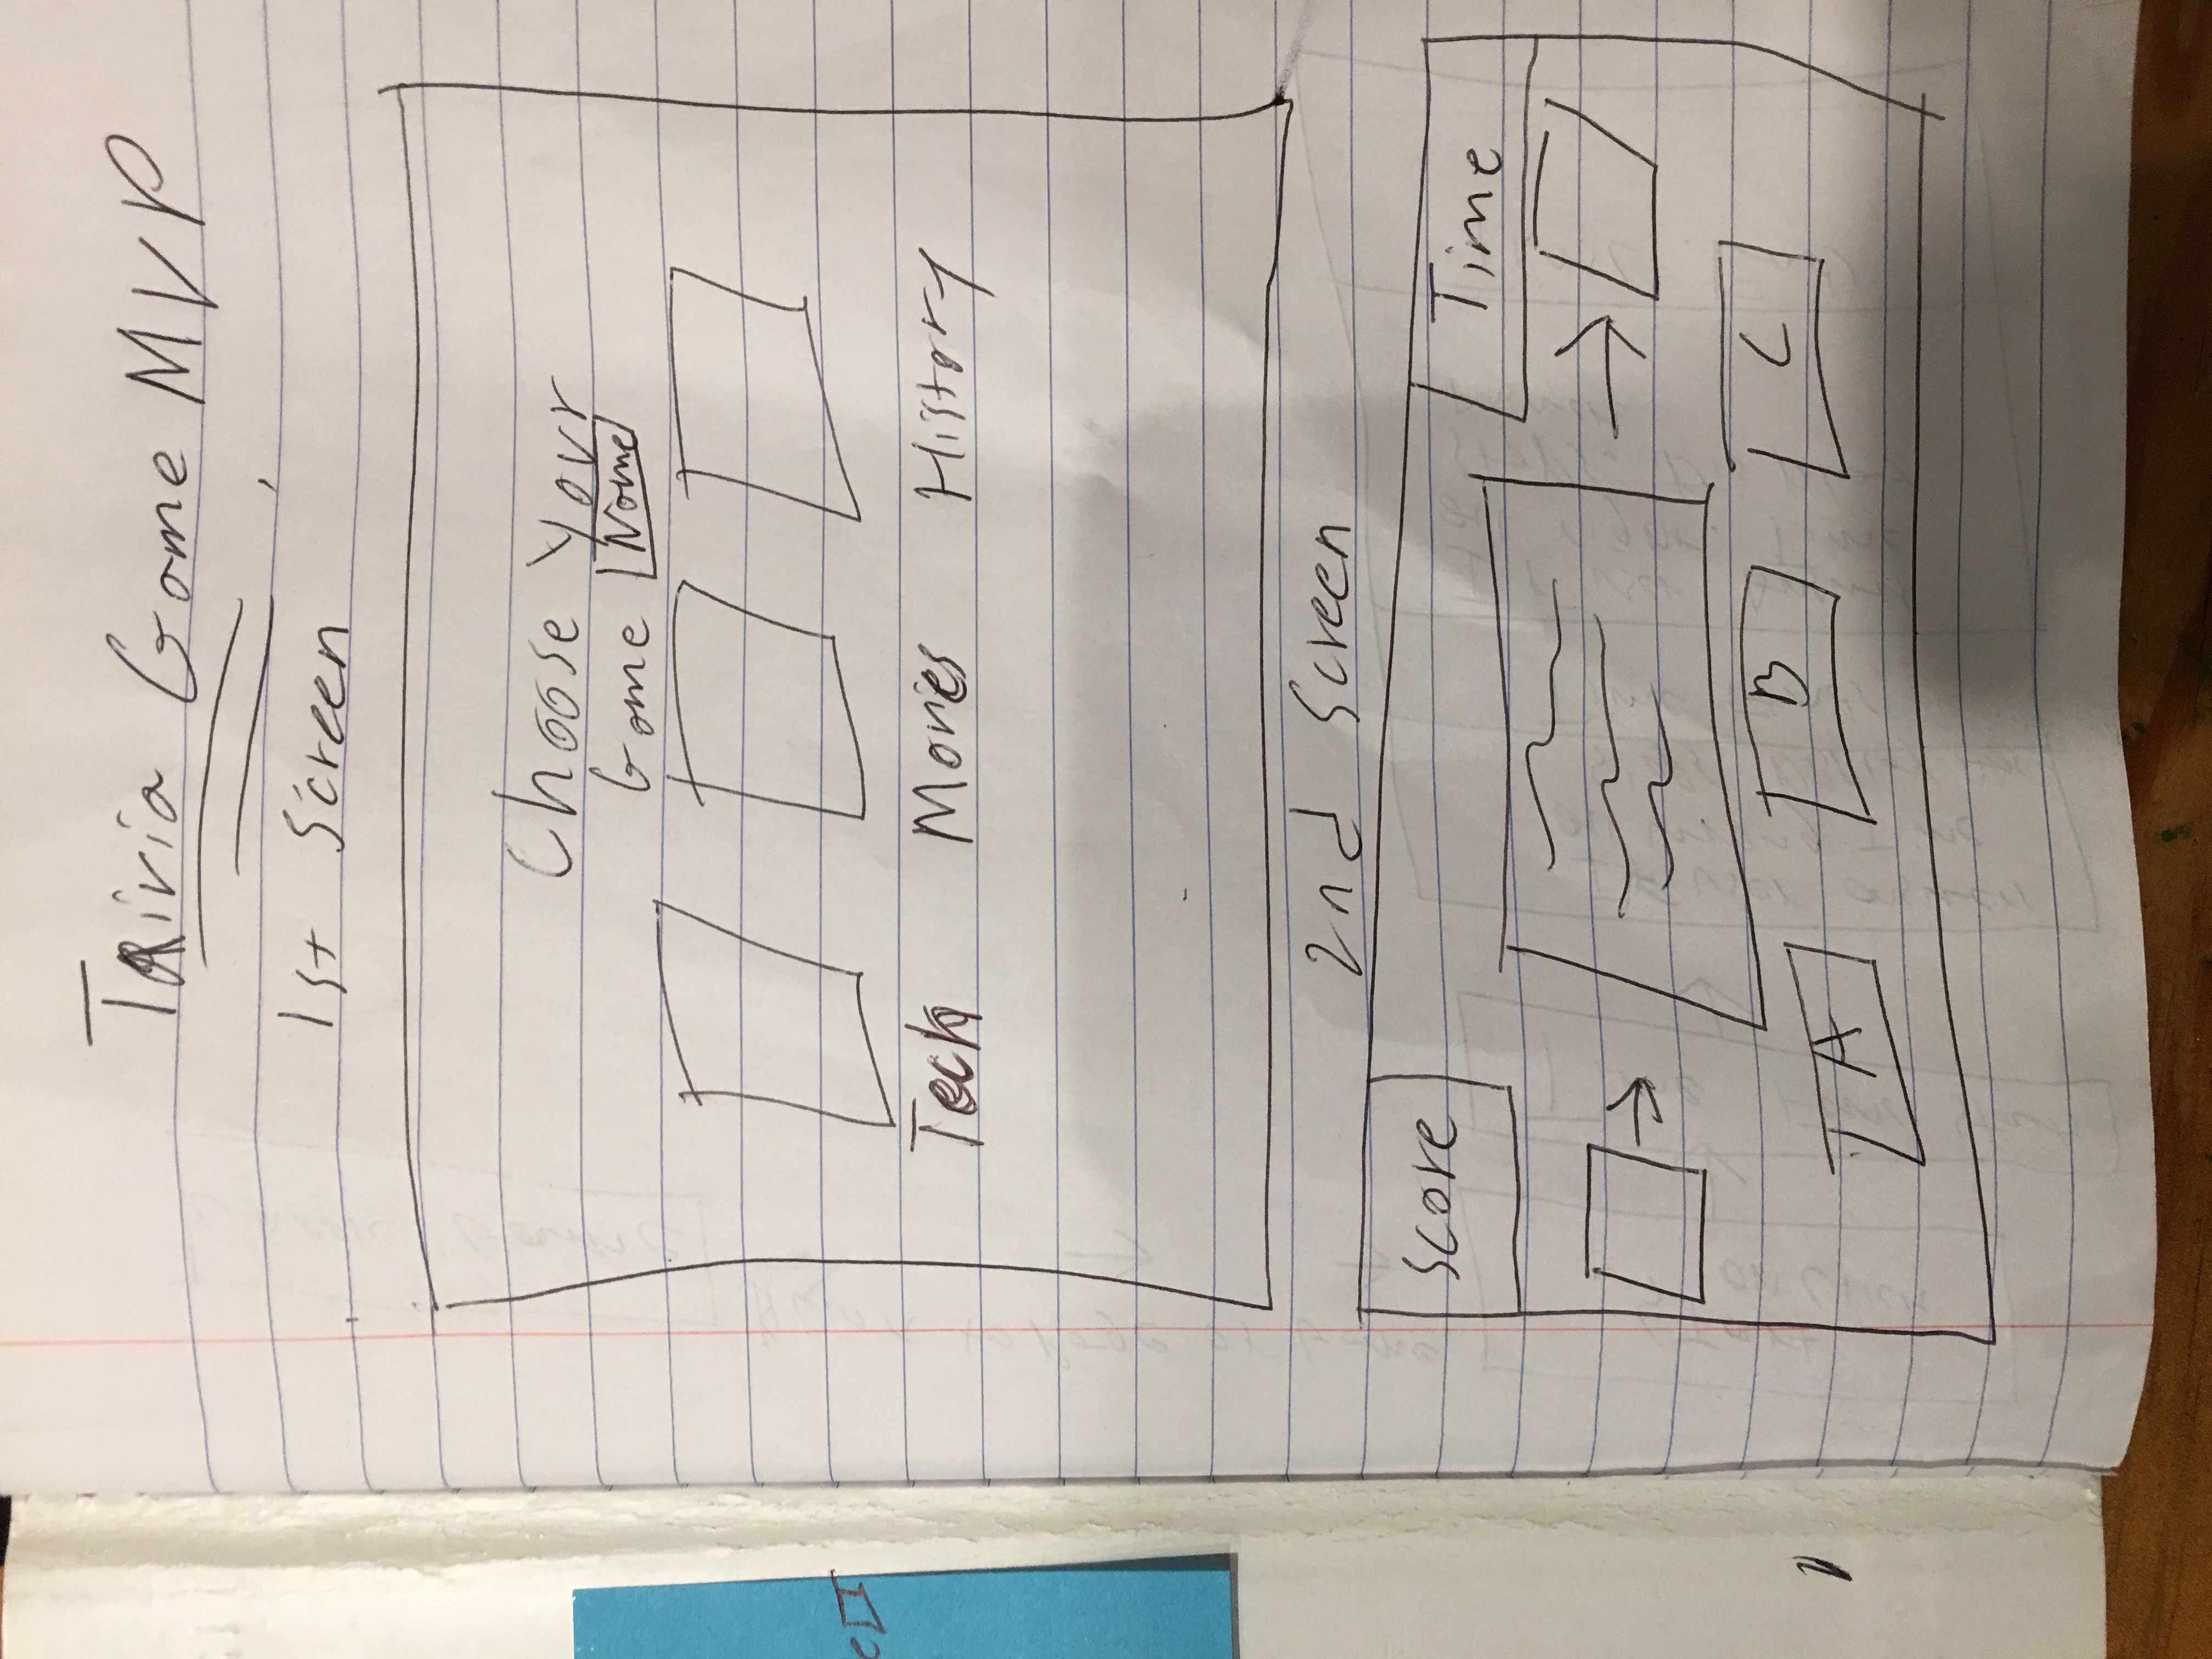 Trivia Game MVP
1st Screen
Choose Your
Game Name
Tech Movies History
2nd Screen
Score Time
A B C